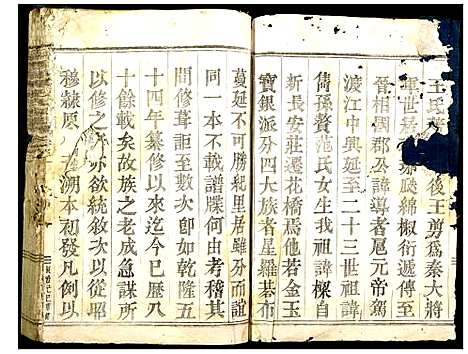 王氏
後王剪爲秦大將
軍世
颷綿椒衍遞傳至
晉相國郡公諱導者扈元帝駕
渡江中興延至二十三世祖諱
雋孫贅范氏女生我祖諱樑自
新長安莊遷花橋焉若金玉
寶銀派分四大族者星羅碁布
蔓延不可勝紀里居雖分而誼
同一本不載譜牒何由考稽其
間修葺詎至數次即如乾隆五
十四年纂修以來迄今已歷八
十餘載矣故族之老成急謀所
以修之
亦欲統敘次以從昭
穆隸原
溯本初發凡例以